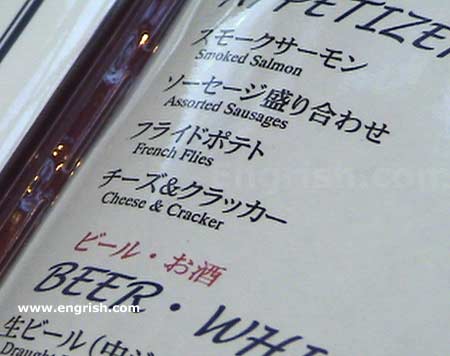 APPETIZER
スモークサーモン
Smoked Salmon
ソーセージ盛り合わせ
Assorted Sausages
フライドポテト
French Flies
チーズ&クラッカー
Cheese & Cracker
ビール・お酒
BEER・WHI
www.engrish.com
生ビール(中ジ
Draught
engrish.com